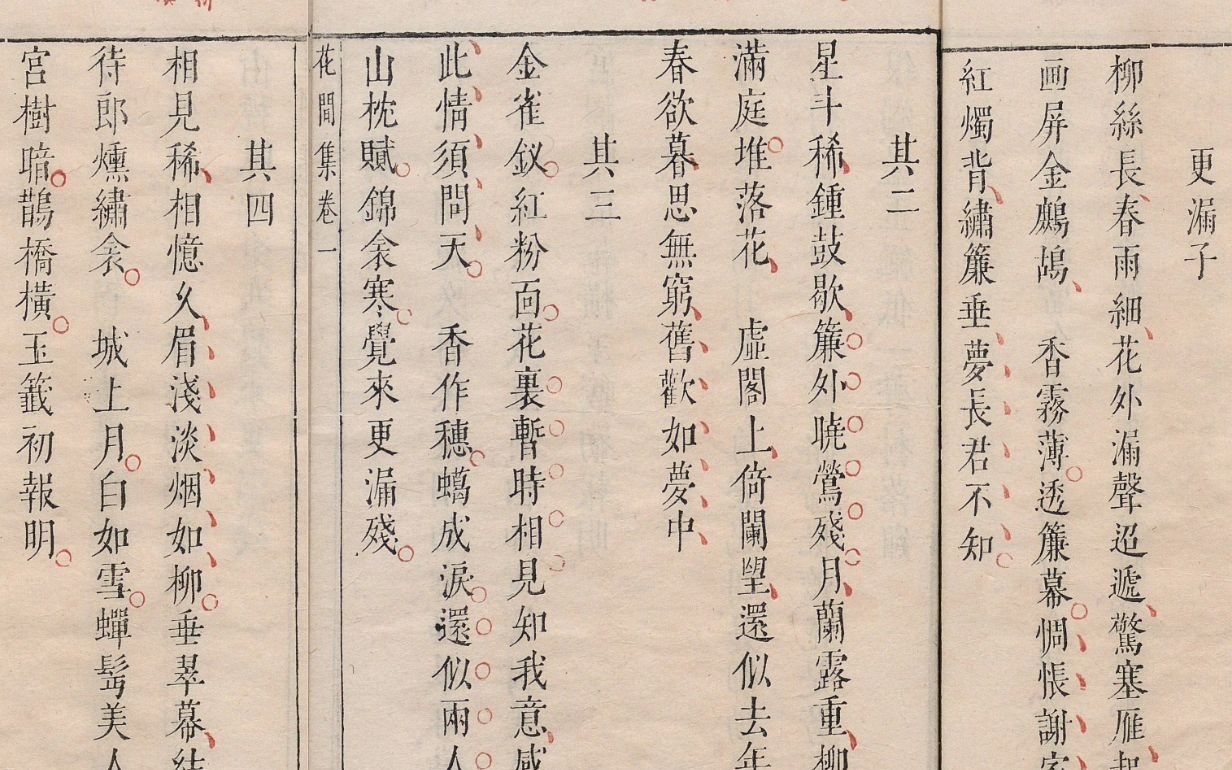 更漏子
柳絲長春雨細花外漏聲迢遞驚塞雁起
画屏金鷓鴣　香霧薄透簾幕惆悵謝家
紅燭背繡簾垂夢長君不知
其二
星斗稀鍾鼓歇簾外曉鶯殘月蘭露重柳
滿庭堆落花　虛閣上倚闌望還似去年
春欲暮思無窮舊歡如夢中
其三
金雀釵紅粉面花裏暫時相見知我意感
此情須問天　香作穗蠟成淚還似兩人
山枕膩錦衾寒覺來更漏殘
花間集卷一
其四
相見稀相憶久眉淺淡烟如柳垂翠幕結
待郎燻繡衾　城上月白如雪蟬髩美人
宮樹暗鵲橋橫玉籤初報明